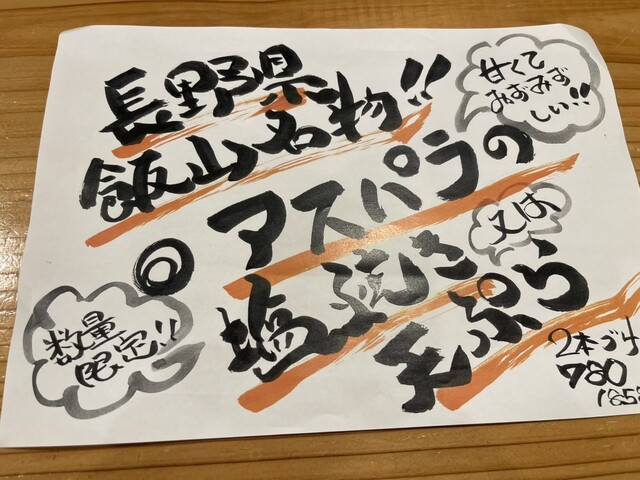 長野県
飯山名物!!
甘くて
みずみず
しい!!
◎アスパラの
塩焼き
又は
天ぷら
数量
限定!!
2本づけ
780